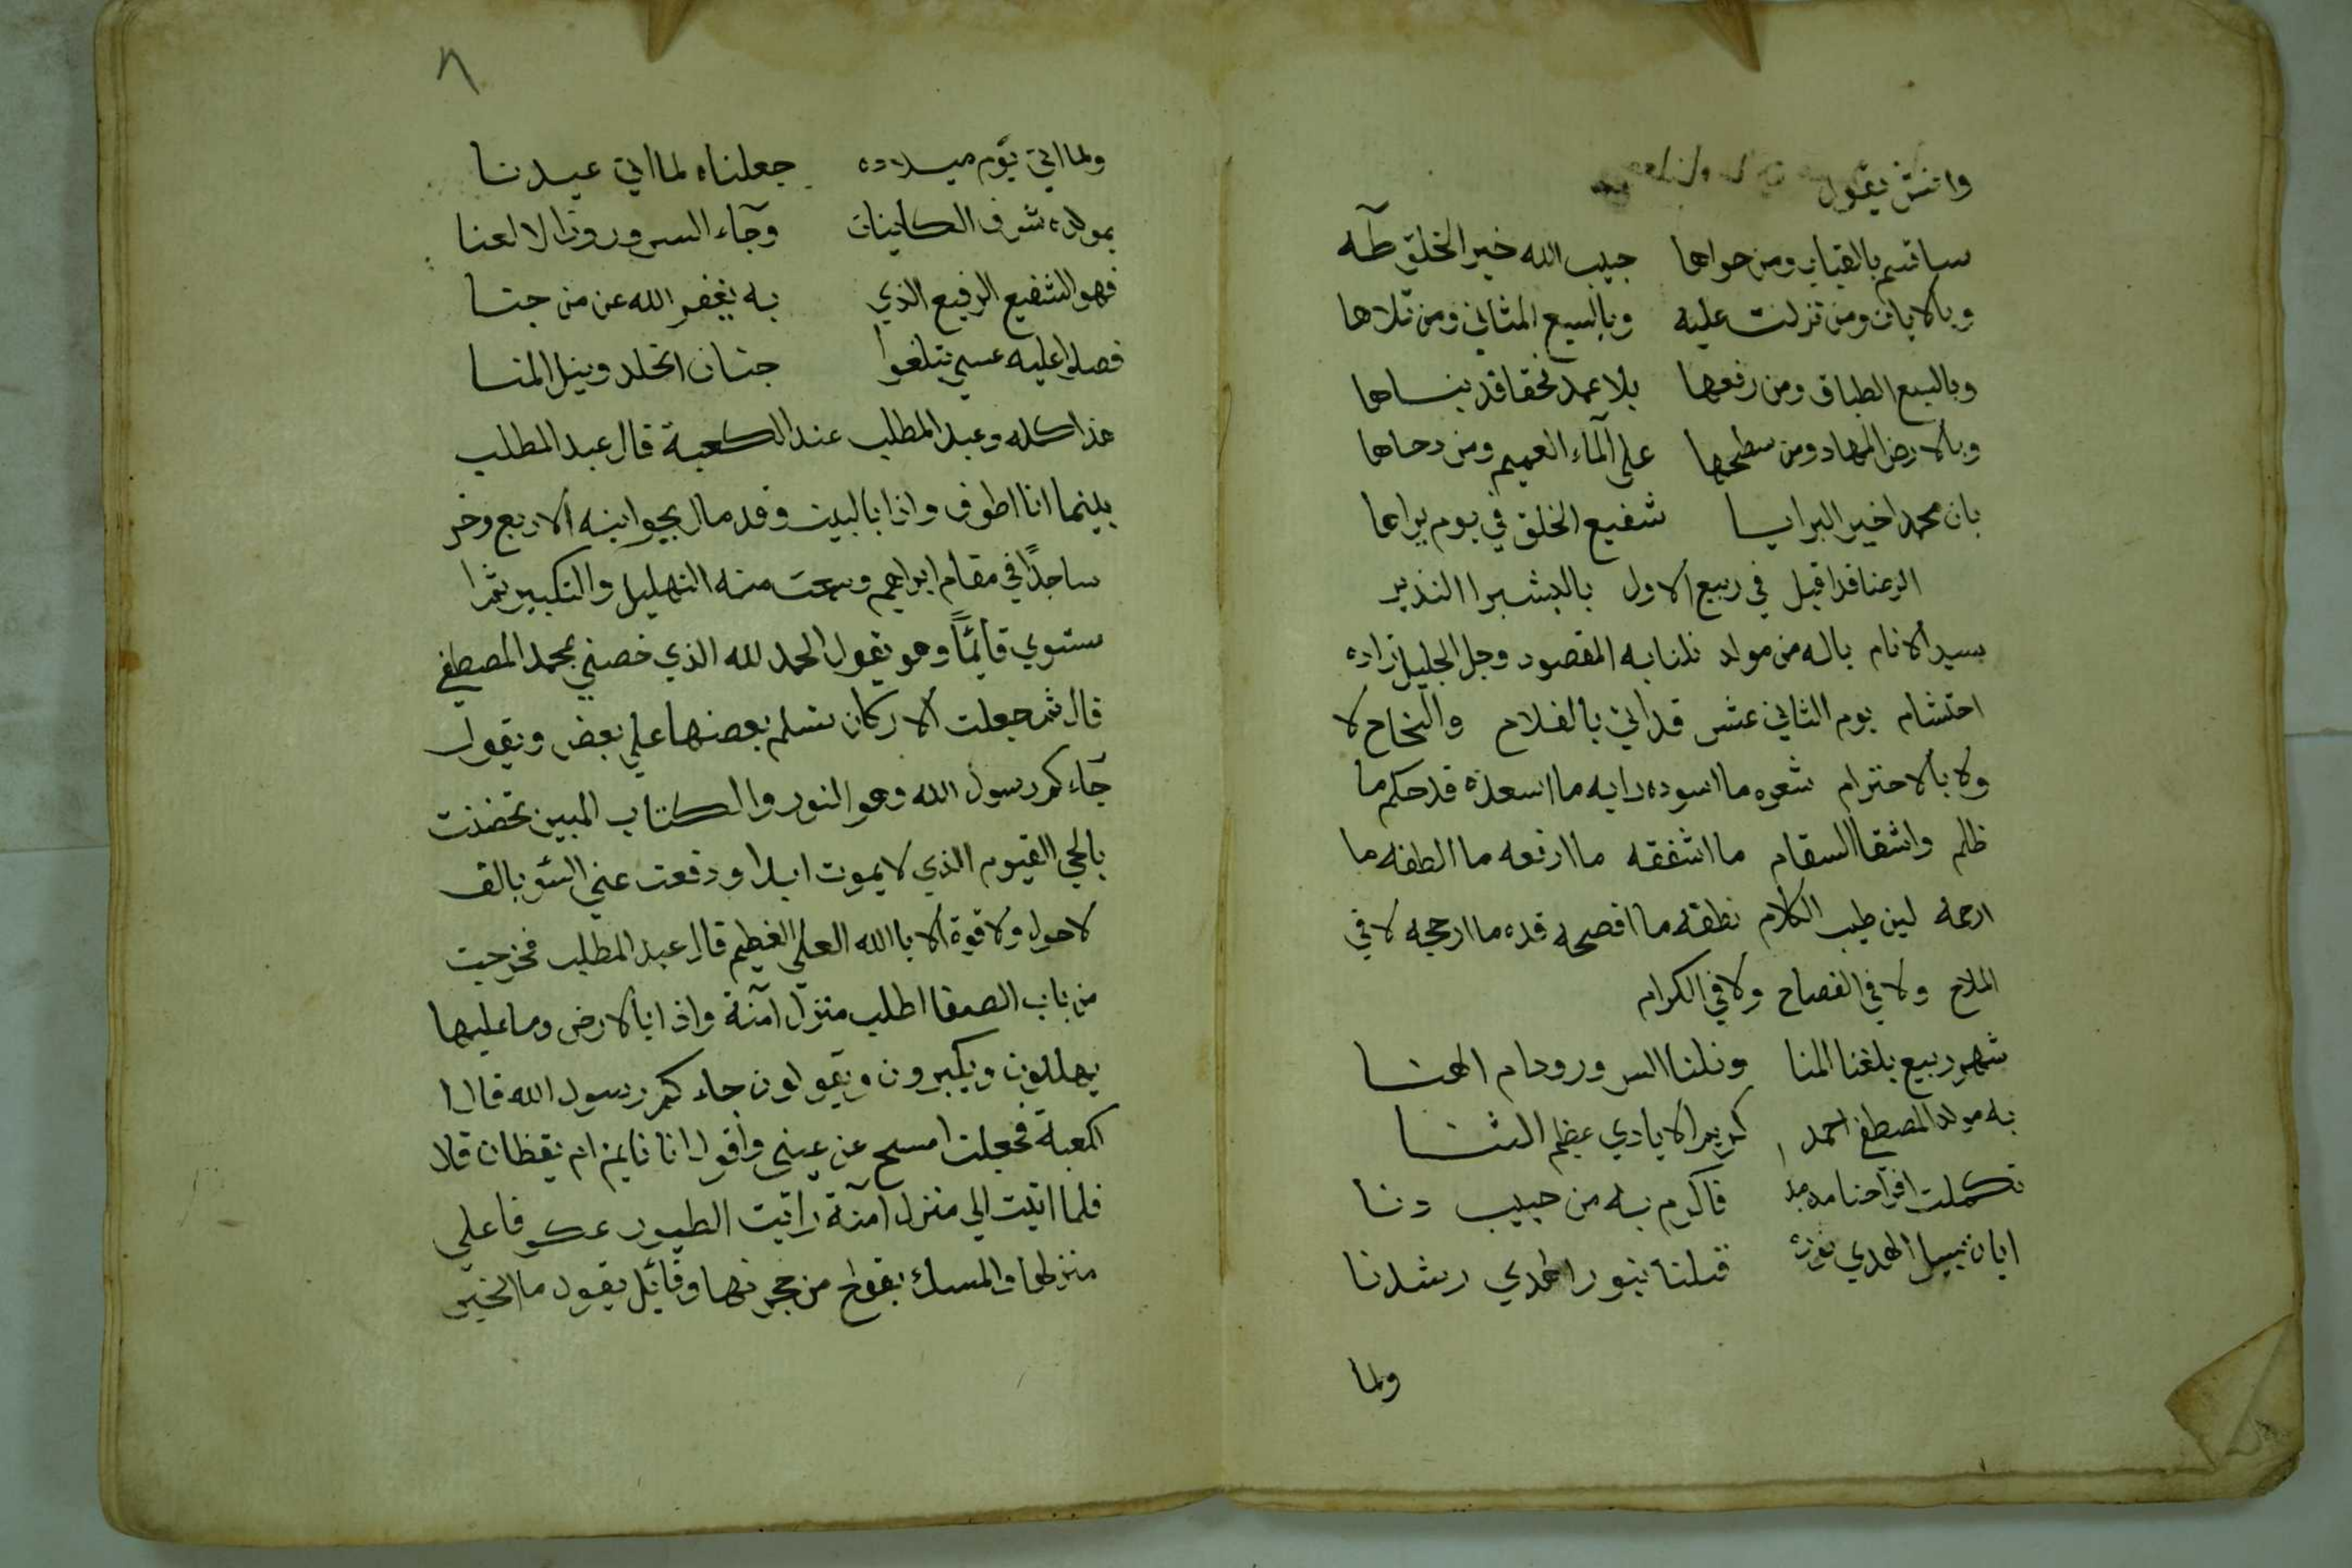 وانشى يقول
ساقسم بالقباب ومن حواها حبيب الله خير الخلق طآه
وبالايات ومن نزلت عليه وبالسبع المثاني ومن تلاها
وبالسبع الطباق ومن رفعها بلا عمد نحقا قد بناها
وبالارض المهاد ومن سطحها على المآء العميم ومن دحاها
بان محمدا خير البرايا شفيع الخلق في يوم يراها
الزعنا قد اقبل في ربيع الاول بالبشير النذير
بسيد الانام ياله من مولد نلنا به المقصود وجل الجليل زاده
احتشام يوم الثاني عشر قد اتي بالفلاح والنجاح لا
ولا بالاحترام شعره ما اسوده رايه ما اسعده قد حكم ما
ظلم واشفا السقام ما اشفقه ما ارفعه ما الطفه ما
ارحمه لين طيب الكلام نطقه ما افصحه قده ما ارجحه لا في
الملاح ولا في الفصاح ولا في الكرام
شهر ربيع بلغنا المنا ونلنا السرور ودام الهنا
به مولد المصطفى احمد كريم الايادي عظيم الثنا
تكملت افراحنا فاكرم به من حبيب دنا
ابان سبيل الهدي نوره فبلنا بنور الهدي رشدنا
ولما
٨
ولما اتي يوم ميلاده جعلناه لما اتي عيدنا
بمولده شرف الكاينات وجآء السرور وزال العنا
فهو الشفيع الرفيع الذي به يغفر الله عن من جنا
فصلوا عليه عسي تبلغوا جنان الخلد ونيل المنا
هذا كله وعبد المطلب عند الكعبة قال عبد المطلب
بينما انا اطوف واذا بالبيت وقد مال بجوانبه الاربع وخر
ساجدًا في مقام ابراهيم وسمعت منه التهليل والتكبير ثم ا
ستوي قائمًا وهو يقول الحمد لله الذي خصني بمحمد المصطفي
قال ثم جعلت الاركان تسلم بعضها علي بعض ويقول
جآءكم رسول الله وهو النور والكتاب المبين تحضنت
بالحي القيوم الذي لا يموت ابدا ودفعت عني السؤ بالف
لا حول ولا قوة الا باالله العلي العظيم قال عبد المطلب فخرجت
من باب الصفا اطلب منزل آمنة واذا بالارض وما عليها
يهللون ويكبرون ويقولون جاءكم رسول الله قال ا
لكعبة فجعلت امسح عن عيني واقول انا نايم ام يقظان قال
فلما اتيت الي منزل آمنة رايت الطيور عكوفا علي
منزلها والمسك يفوح من حجرتها وقائل يقول ما الخبر